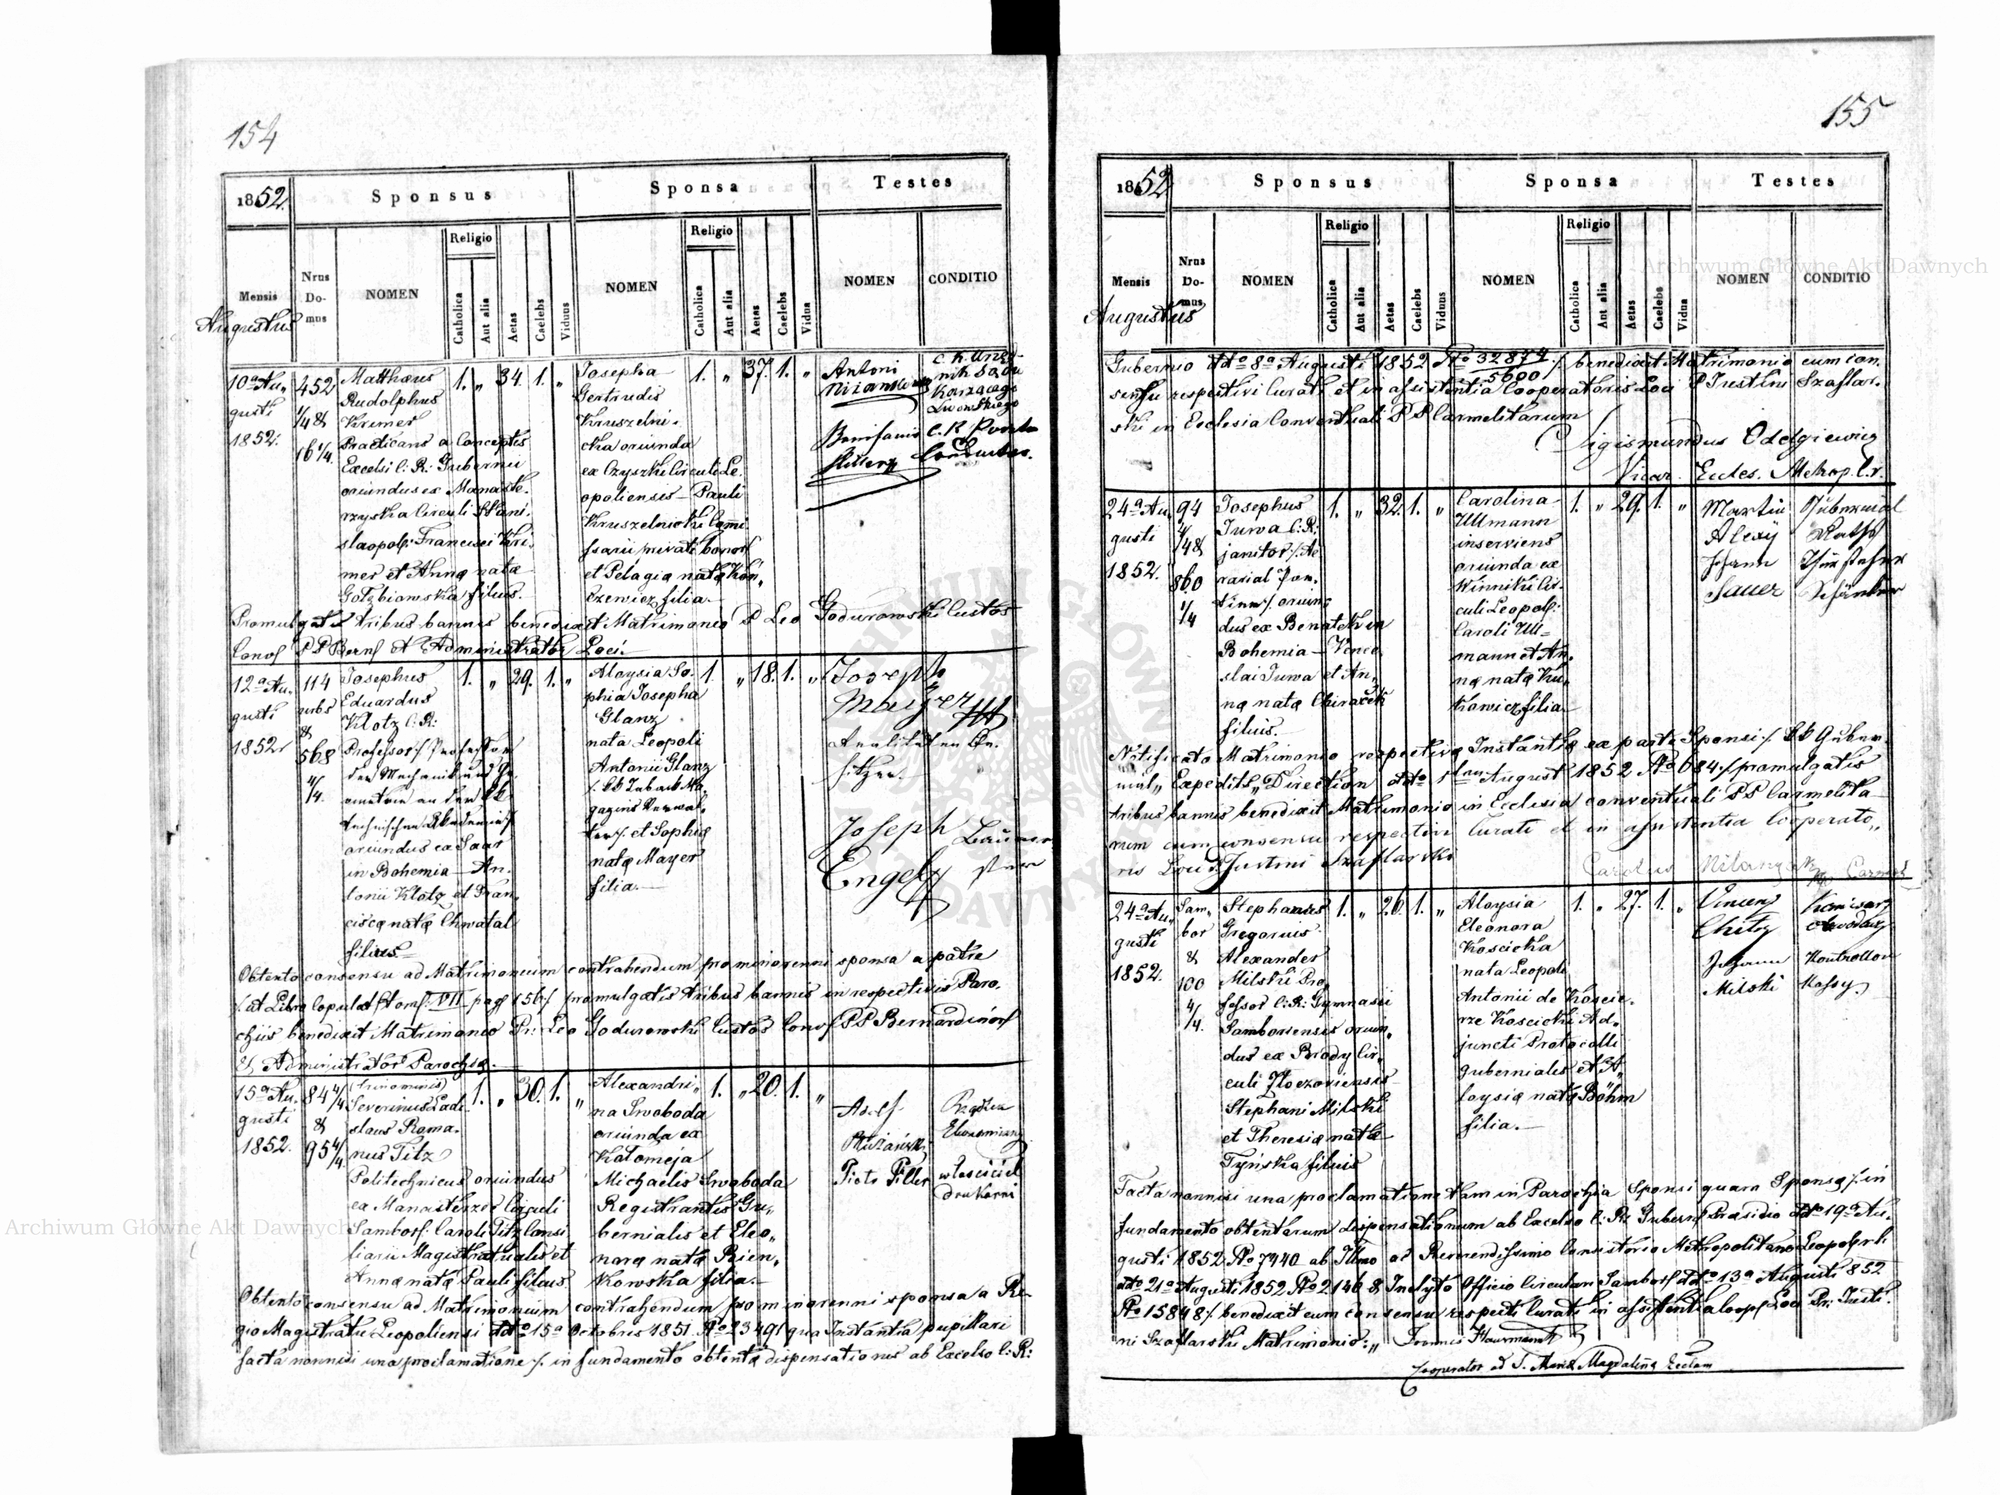 154
1852.
Sponsus
Sponsa
Testes
Mensis
Nrus Do-mus
NOMEN
Religio
Catholica
Aut alia
Aetas
Caelebs
Viduus
NOMEN
Religio
Catholica
Aut alia
Aetas
Caelebs
Vidua
NOMEN
CONDITIO
Augustus
10a Au-
gusti
1852.
452
4/48
16 1/4.
Matthaeus
Rudolphus
Krimer
Practicans a Conceptis
Excelsi C: R: Gubernii
oriundus ex Manaste-
rzyska Circuli Stani-
slaopol: Francisci Kri-
mer et Anna nata
Gołębiowska filius.
1. „ 34. 1. „
Josepha
Gertrudis
Kruszelni-
cka oriunda
ex Czyszki Circuli Le-
opoliensis Pauli
Kruszelnicki
et Pelagia nata
filia.
1. „ 37. 1. „
Antoni
Bonifacio
C. K.
Lwowskiego
Promulgatis tribus bannis benedixit Matrimonio P Leo Godurowski Custos
Conv PP Bern et Administrator Loci.
12a Au-
gusti
1852
114
urbs
&
568
4/4.
Josephus
Eduardus
Klotz C: R:
Professor /: Professor
der Mechanik und Ge-
ometrie an der KK
technischen Akademie /
oriundus ex Saar
in Bohemia An-
tonii Klotz et Fran-
cisca nata Chwatal
filius
1. „ 29. 1. „
Aloysia So-
phia Josepha
Glanz
nata Leopoli
Antonii Glanz
et Sophia
nata Mayer
filia.
1. „ 18. 1. „
Joseph
Mayer
Realitäten Be-
sitzer.
Joseph
Engel
Obtento consensu ad Matrimonium contrahendum pro minorenni sponsa a patre
promulgatis tribus bannis in respectivis Paro-
chiis benedixit Matrimonio Pr: Leo Godurowski Custos Conv PP Bernardinor
et Administrator Parochiae.
15a Au-
gusti
1852.
84 4/4
&
95 4/4
(trinominis)
Severinus Ladi-
slaus Roma-
nus Titz
Politechnicus oriundus
ex Manasterzec Circuli
Sambor: Caroli Titz Consi-
liarii Magistratualis et
Anna nata Pauli filius
1. „ 30. 1. „
Alexandri-
na Swoboda
oriunda ex
Kołomeja
Michaelis Swoboda
Registrantis Gu-
bernialis et Eleo-
nora nata Bien-
kowska filia.
1. „ 20. 1. „
Piotr Piller
właściciel
drukarni
Obtento consensu ad Matrimonium contrahendum pro minorenni sponsa a Re-
gio Magistratu Leopoliensi ddto 15a Octobris 1851 No 23491 qua Instantia pupillari
facta nonnisi una proclamatione /: in fundamento obtenta dispensationis ab Excelso C: R:
155
1852
Sponsus
Sponsa
Testes
Mensis
Nrus Do-mus
NOMEN
Religio
Catholica
Aut alia
Aetas
Caelebs
Viduus
NOMEN
Religio
Catholica
Aut alia
Aetas
Caelebs
Vidua
NOMEN
CONDITIO
Augustus
Gubernio ddto 8a Augusti 1852 No 32874/5600 / benedixit Matrimonio cum con-
sensu respectivi Curati et in assistentia Cooperatoris Loci P Justini Szaflar-
ski in Ecclesia Conventuali PP Carmelitarum
Sigismundus Odelgiewicz
Vicar. Eccles. Metrop. l. r.
24a Au-
gusti
1852.
94
4/48
860
1/4
Josephus
Juwa C: R:
janitor /: Ae-
rarial Por-
tier / oriun-
dus ex Benatek in
Bohemia Vence-
slai Juwa et An-
na nata Chiraček
filius.
1. „ 32. 1. „
Carolina
Ullmann
inserviens
oriunda ex
Winniki Cir-
culi Leopol:
Caroli Ull-
mann et An-
na nata Ku-
kowicz filia
1. „ 29. 1. „
Martin
Alexy
Gubernial
Johann
Sauer
Notificato Matrimonio respectiva Instantia ex parte Sponsi /: KK Guber-
nial „ Expedits „ Direction ddto 1ten August 1852 No 684 :/ promulgatis
tribus bannis benedixit Matrimonio in Ecclesia conventuali PP Carmelita-
rum cum consensu respectivi Curati et in assistentia Cooperato-
ris Loci P Justini Szaflarski
Carolus
24a Au-
gusti
1852.
Sam-
bor
&
100
4/4.
Stephanus
Gregorius
Alexander
Milski Pro-
fessor C: R: Gymnasii
Samboriensis oriun-
dus ex Brody Cir-
culi Złoczoviensis
Stephani Milski
et Theresia nata
Tyńska filius
1. „ 26. 1. „
Aloysia
Eleonora
Koscicka
nata Leopoli
Antonii de Koscie-
rze Koscicki Ad-
juncti Protocolli
gubernialis et A-
loysia nata Böhm
filia.
1. „ 27. 1. „
Vincenz
Komisarz
obwodowy
Johann
Milski
Kontrollor
Facta nonnisi una proclamatione tam in Parochia Sponsi quam Sponsa /: in
fundamento obtentarum dispensationum ab Excelso C: R: Gubern Praesidio ddto 19a Au-
gusti 1852 No 7940 ab Illmo ac Reverendissimo Consistorio Metropolitano Leopol r. l:
ddto 21a Augusti 1852 No 2146 & Inclyto Officio Circulari Sambor ddto 13a Augusti 852
No 15848 / benedixit cum consensu respecti Curati in assistentia Coop Loci Pr: Justi-
ni Szaflarski Matrimonio: „
Cooperator ad S. Maria Magdalena Eccliam
Archiwum Główne Akt Dawnych
Archiwum Główne Akt Dawnych
ARCHIWUM GŁÓWNE AKT DAWNYCH